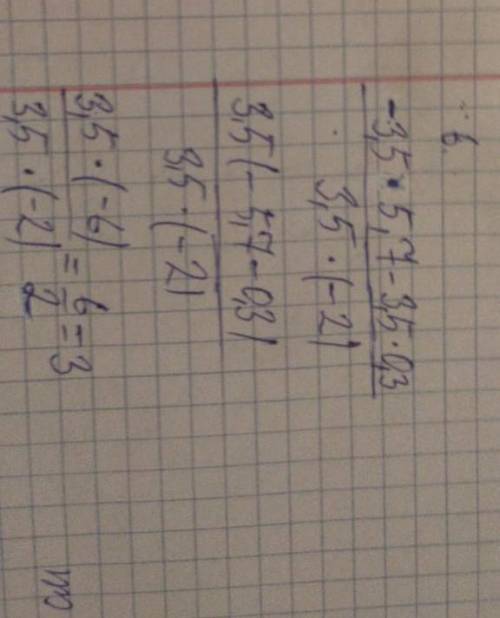 6.
-3,5 • 5,7 - 3,5 · 0,3
3,5 · (-2)
3,5 (-5,7 - 0,3)
3,5 · (-2)
3,5 · (-6)
3,5 · (-2) = 6/2 = 3